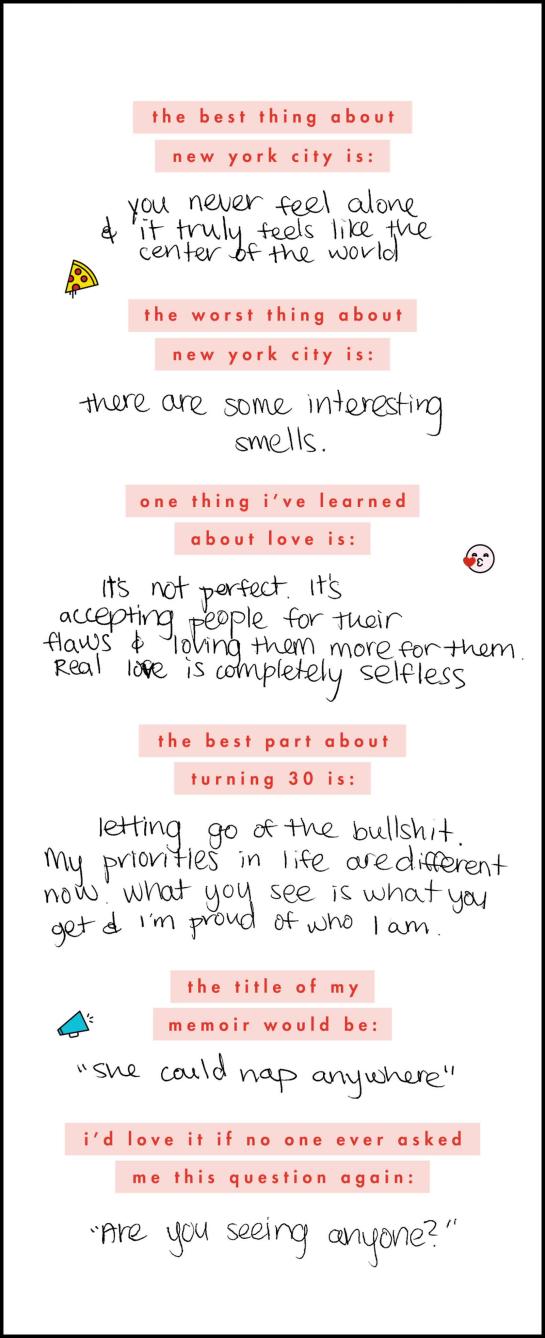 the best thing about
new york city is:
you never feel alone
& it truly feels like the
center of the world
the worst thing about
new york city is:
there are some interesting
smells.
one thing i've learned
about love is:
It's not perfect. It's
accepting people for their
flaws & loving them more for them.
Real love is completely selfless
the best part about
turning 30 is:
letting go of the bullshit.
My priorities in life are different
now. what you see is what you
get & i'm proud of who I am.
the title of my
memoir would be:
"she could nap anywhere"
i'd love it if no one ever asked
me this question again:
"Are you seeing anyone?"